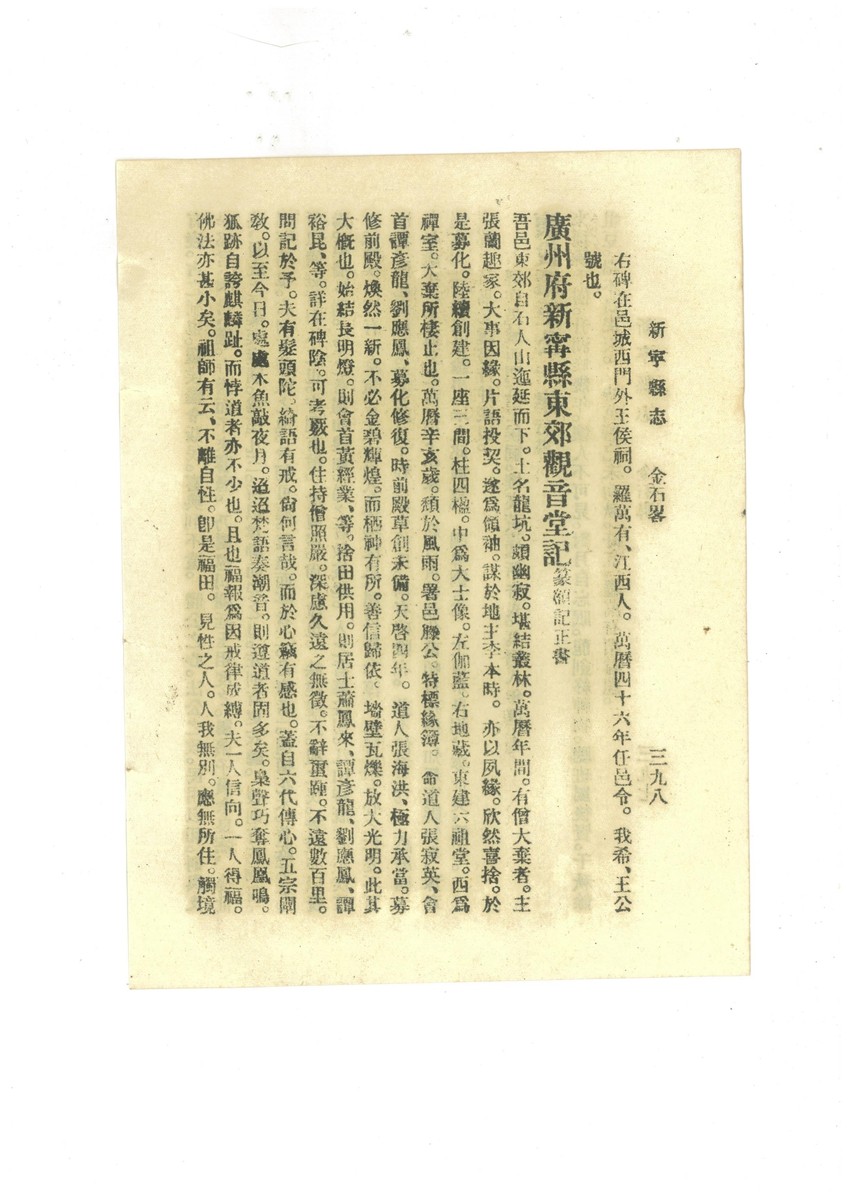 新寧縣志　金石畧　三九八
右碑在邑城西門外王侯祠。羅萬有、江西人。萬曆四十六年任邑令。我希、王公
號也。
廣州府新寧縣東郊觀音堂記篆額記正書
吾邑東郊自石人山迤延而下。土名龍坑。頗幽寂。堪結叢林。萬曆年間。有僧大棄者。主
張蘭趣家。大事因緣。片語投契。遂爲領袖。謀於地主李本時。亦以夙緣。欣然喜捨。於
是募化。陸續創建。一座三間。柱四楹。中爲大士像。左伽藍。右地藏。東建六祖堂。西爲
禪室。大棄所棲止也。萬曆辛亥歲。頹於風雨。署邑滕公。特標緣簿。命道人張寂英、會
首譚彥龍、劉應鳳、募化修復。時前殿草創未備。天啓四年。道人張海洪、極力承當。募
修前殿。煥然一新。不必金碧輝煌。而栖神有所。善信歸依、墻壁瓦爍。放大光明。此其
大槪也。始結長明燈。則會首黃經業、等。捨田供用。則居士蕭鳳來、譚彥龍、劉應鳳、譚
裕昆、等。詳在碑陰。可考覈也。住持僧照嚴。深慮久遠之無徵。不辭重踵。不遠數百里。
問記於予。夫有髮頭陀。綺語有戒。尙何言哉。而於心竊有感也。蓋自六代傳心。五宗闡
敎。以至今日。處處木魚敲夜月。迢迢梵語奏潮音。則遵道者固多矣。梟聲巧奪鳳凰鳴。
狐跡自誇麒麟趾。而悖道者亦不少也。且也福報爲因戒律成縛。夫一人信向。一人得福。
佛法亦甚小矣。祖師有云、不離自性。卽是福田。見性之人。人我無別。應無所住。觸境